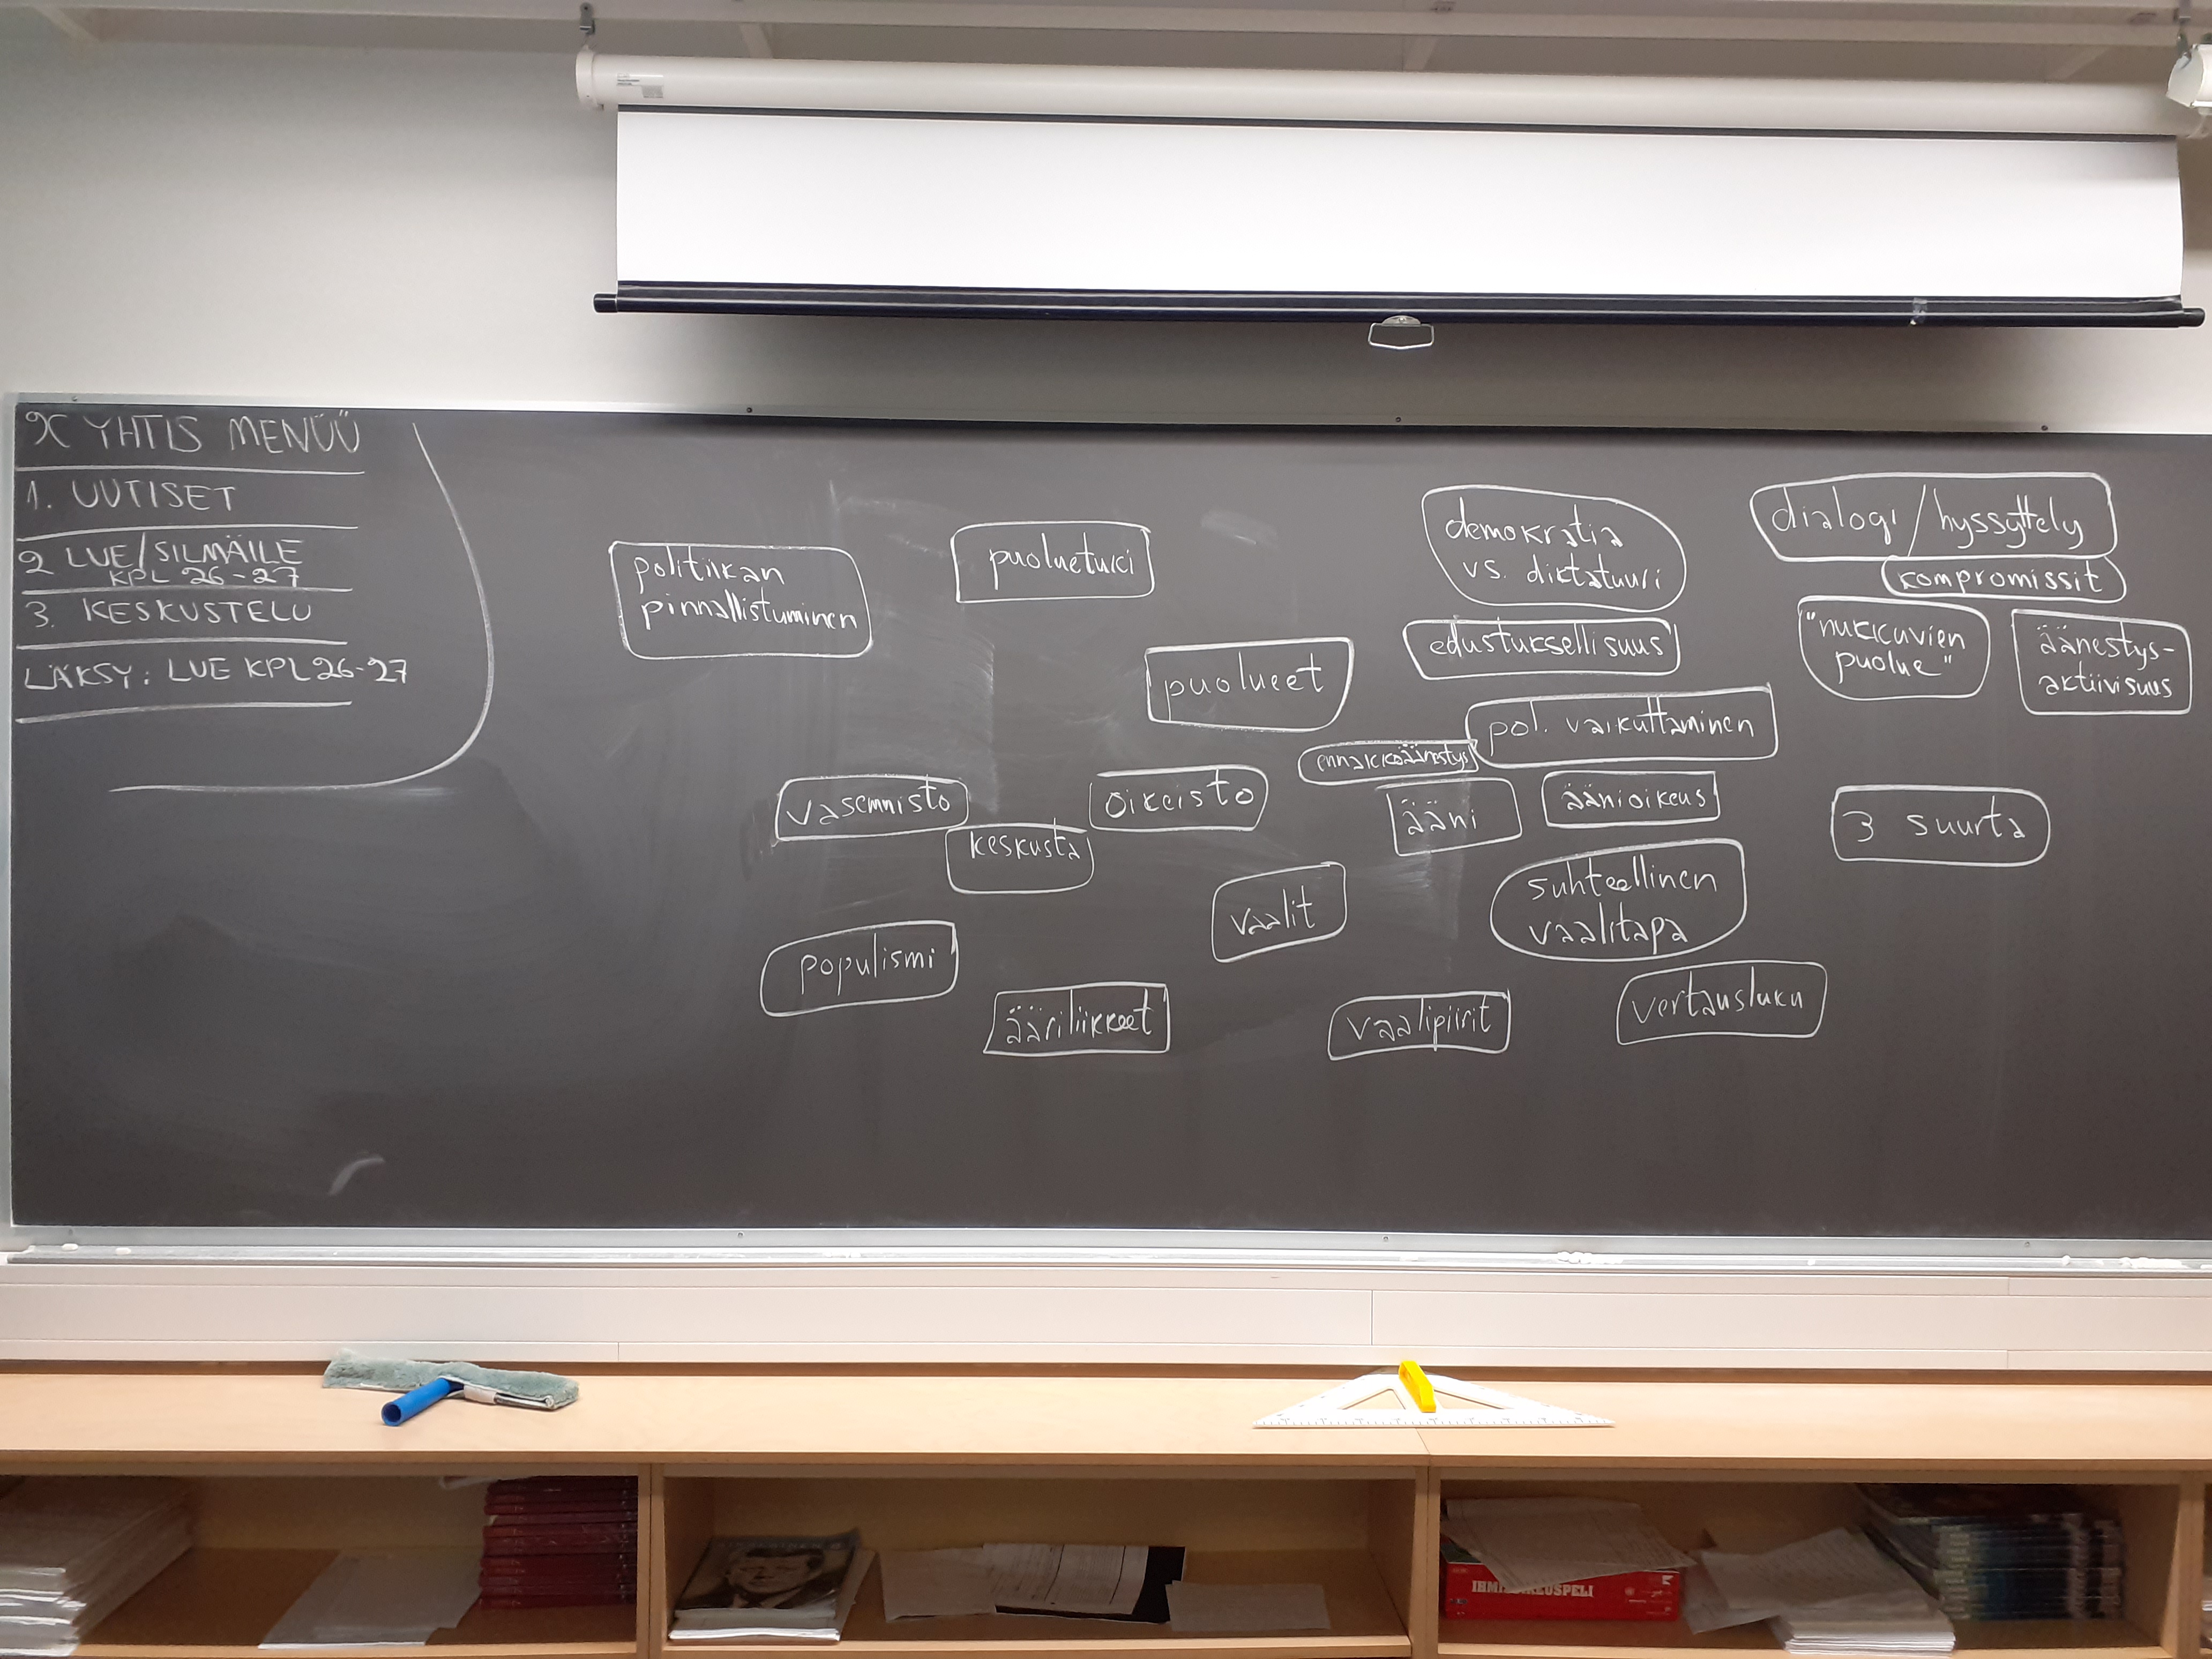 9C YHTIS MENÜÜ
1. UUTISET
2 LUE/SILMÄILE
KPL 26-27
3. KESKUSTELU
LÄKSY: LUE KPL 26-27
politiikan
pinnallistuminen
puoluetuki
demokratia
vs. diktatuuri
dialogi/hyssyttely
kompromissit
edustuksellisuus
"nukkuvien
puolue"
äänestys-
aktiivisuus
puolueet
pol. vaikuttaminen
ennakkoäänestys
vasemmisto
oikeisto
keskusta
ääni
äänioikeus
3 suurta
vaalit
suhteellinen
vaalitapa
populismi
ääriliikkeet
vaalipiirit
vertausluku
IHMISOIKEUSPELI